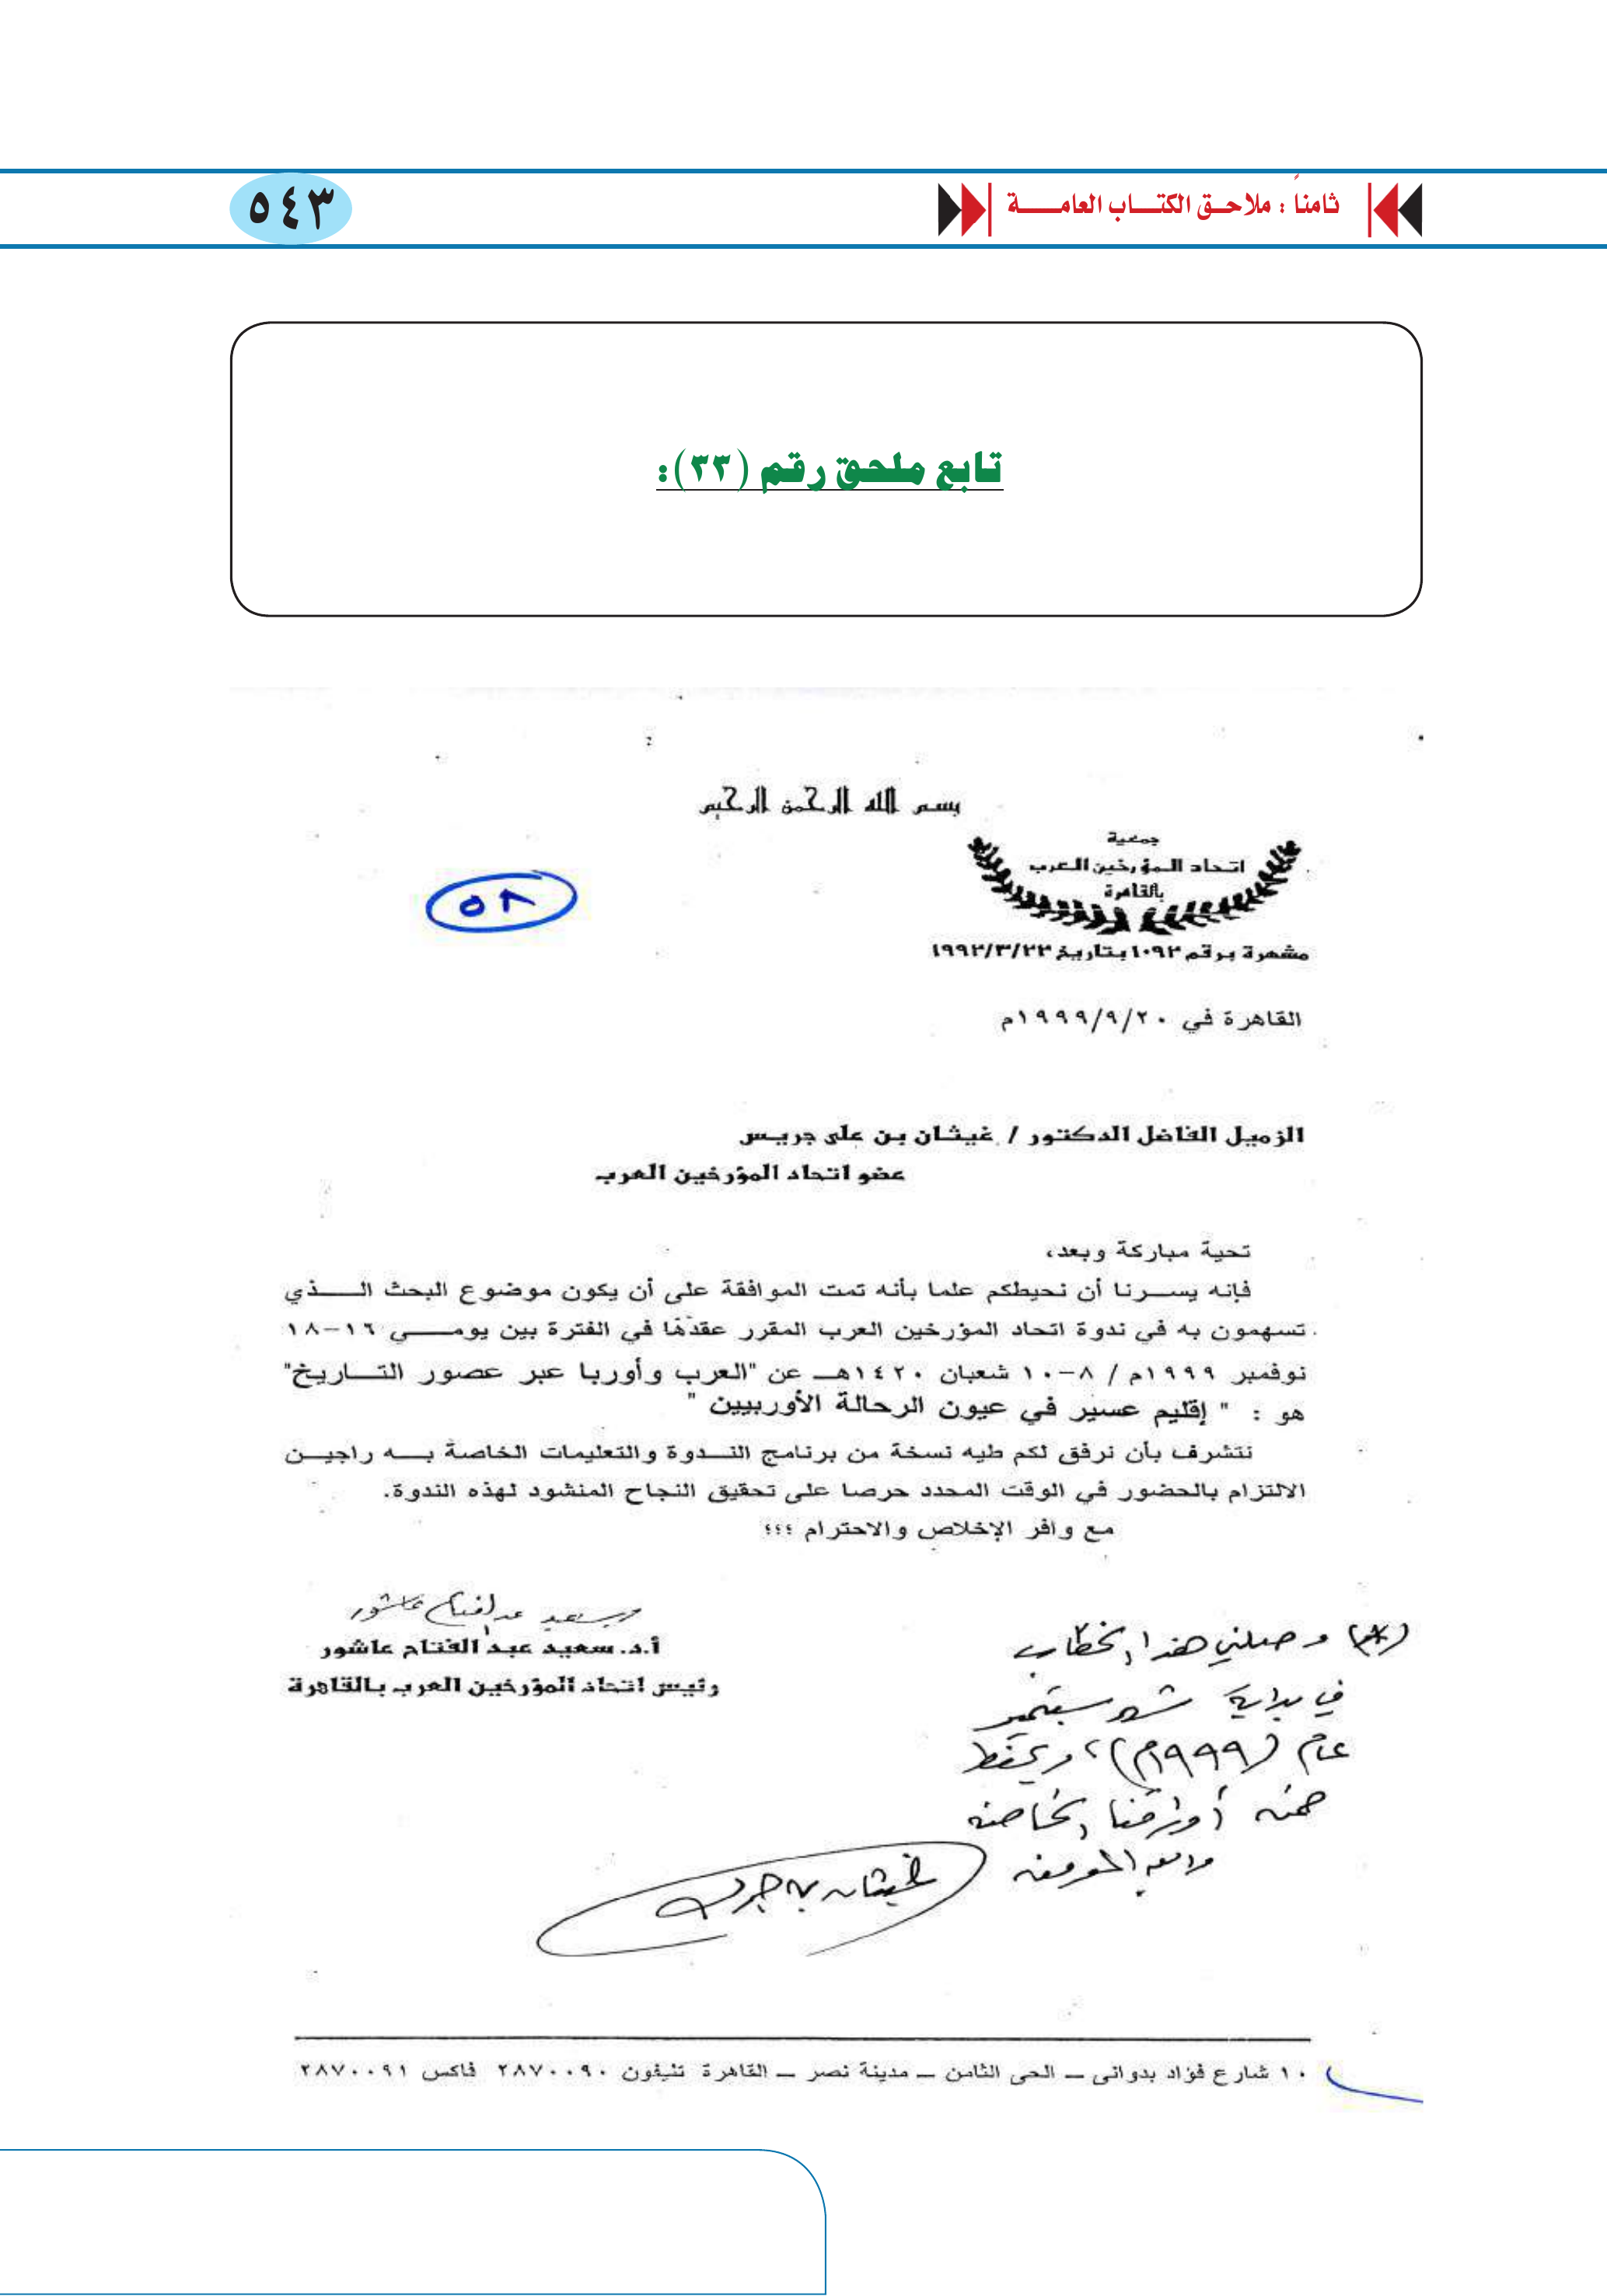 ثامناً : ملاحــق الكتــــاب العامــــــة
٥٤٣
تابع ملحق رقم (٣٣):
بسم الله الرحمن الرحيم
جمعية
اتحاد المؤرخين العرب
بالقاهرة
٥٨
مشهرة برقم ١٠٩٢ بتاريخ ١٩٩٢/٣/٢٣
القاهرة في ١٩٩٩/٩/٢٠م
الزميل الفاضل الدكتور / غيثان بن على جريس
عضو اتحاد المؤرخين العرب
تحية مباركة وبعد،
فإنه يســرنا أن نحيطكم علما بأنه تمت الموافقة على أن يكون موضوع البحث الــــذي
تسهمون به في ندوة اتحاد المؤرخين العرب المقرر عقدها في الفترة بين يومــــي ١٦-١٨
نوفمبر ١٩٩٩م / ٨-١٠ شعبان ١٤٢٠هــ عن "العرب وأوربا عبر عصور التـــاريخ"
هو : " إقليم عسير في عيون الرحالة الأوربيين "
نتشرف بأن نرفق لكم طيه نسخة من برنامج النــدوة والتعليمات الخاصة بـــه راجيــن
الالتزام بالحضور في الوقت المحدد حرصا على تحقيق النجاح المنشود لهذه الندوة.
مع وافر الإخلاص والاحترام ؛؛؛
سعيد عبد الفتاح عاشور
أ.د. سعيد عبد الفتاح عاشور
رئيس اتحاد المؤرخين العرب بالقاهرة
(*) وصلني هذا الخطاب
في بداية شهر سبتمبر
عام (١٩٩٩م)، ويحفظ
ضمن أوراقنا الخاصة
والله الموفق
غيثان بن جريس
١٠ شارع فؤاد بدوانى – الحى الثامن – مدينة نصر – القاهرة تليفون ٢٨٧٠٠٩٠ فاكس ٢٨٧٠٠٩١